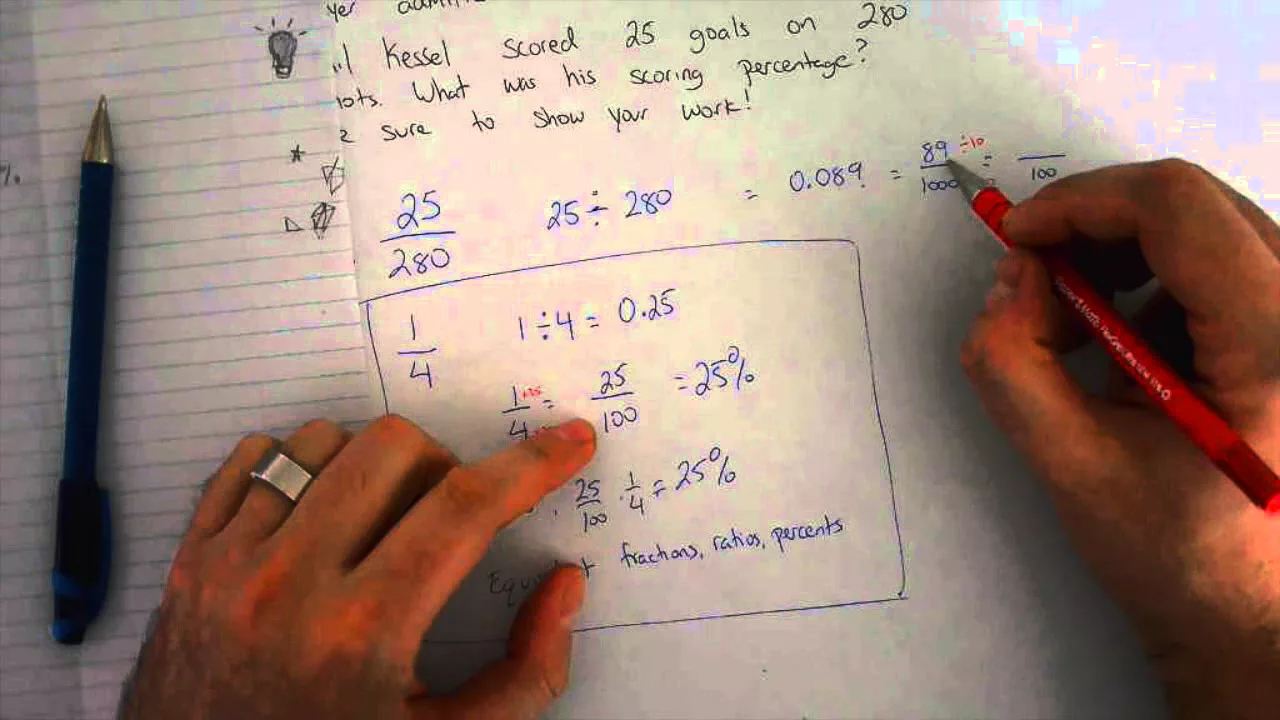 yer
ıl Kessel scored 25 goals on 280
lots. What was his scoring percentage?
e sure to show your work!
%.
25/280 25 ÷ 280 = 0.089 = 89/1000 ÷10 = /100
1/4 1÷4 = 0.25
1/4 = 25/100 = 25%
25/100 · 1/4 = 25%
fractions, ratios, percents